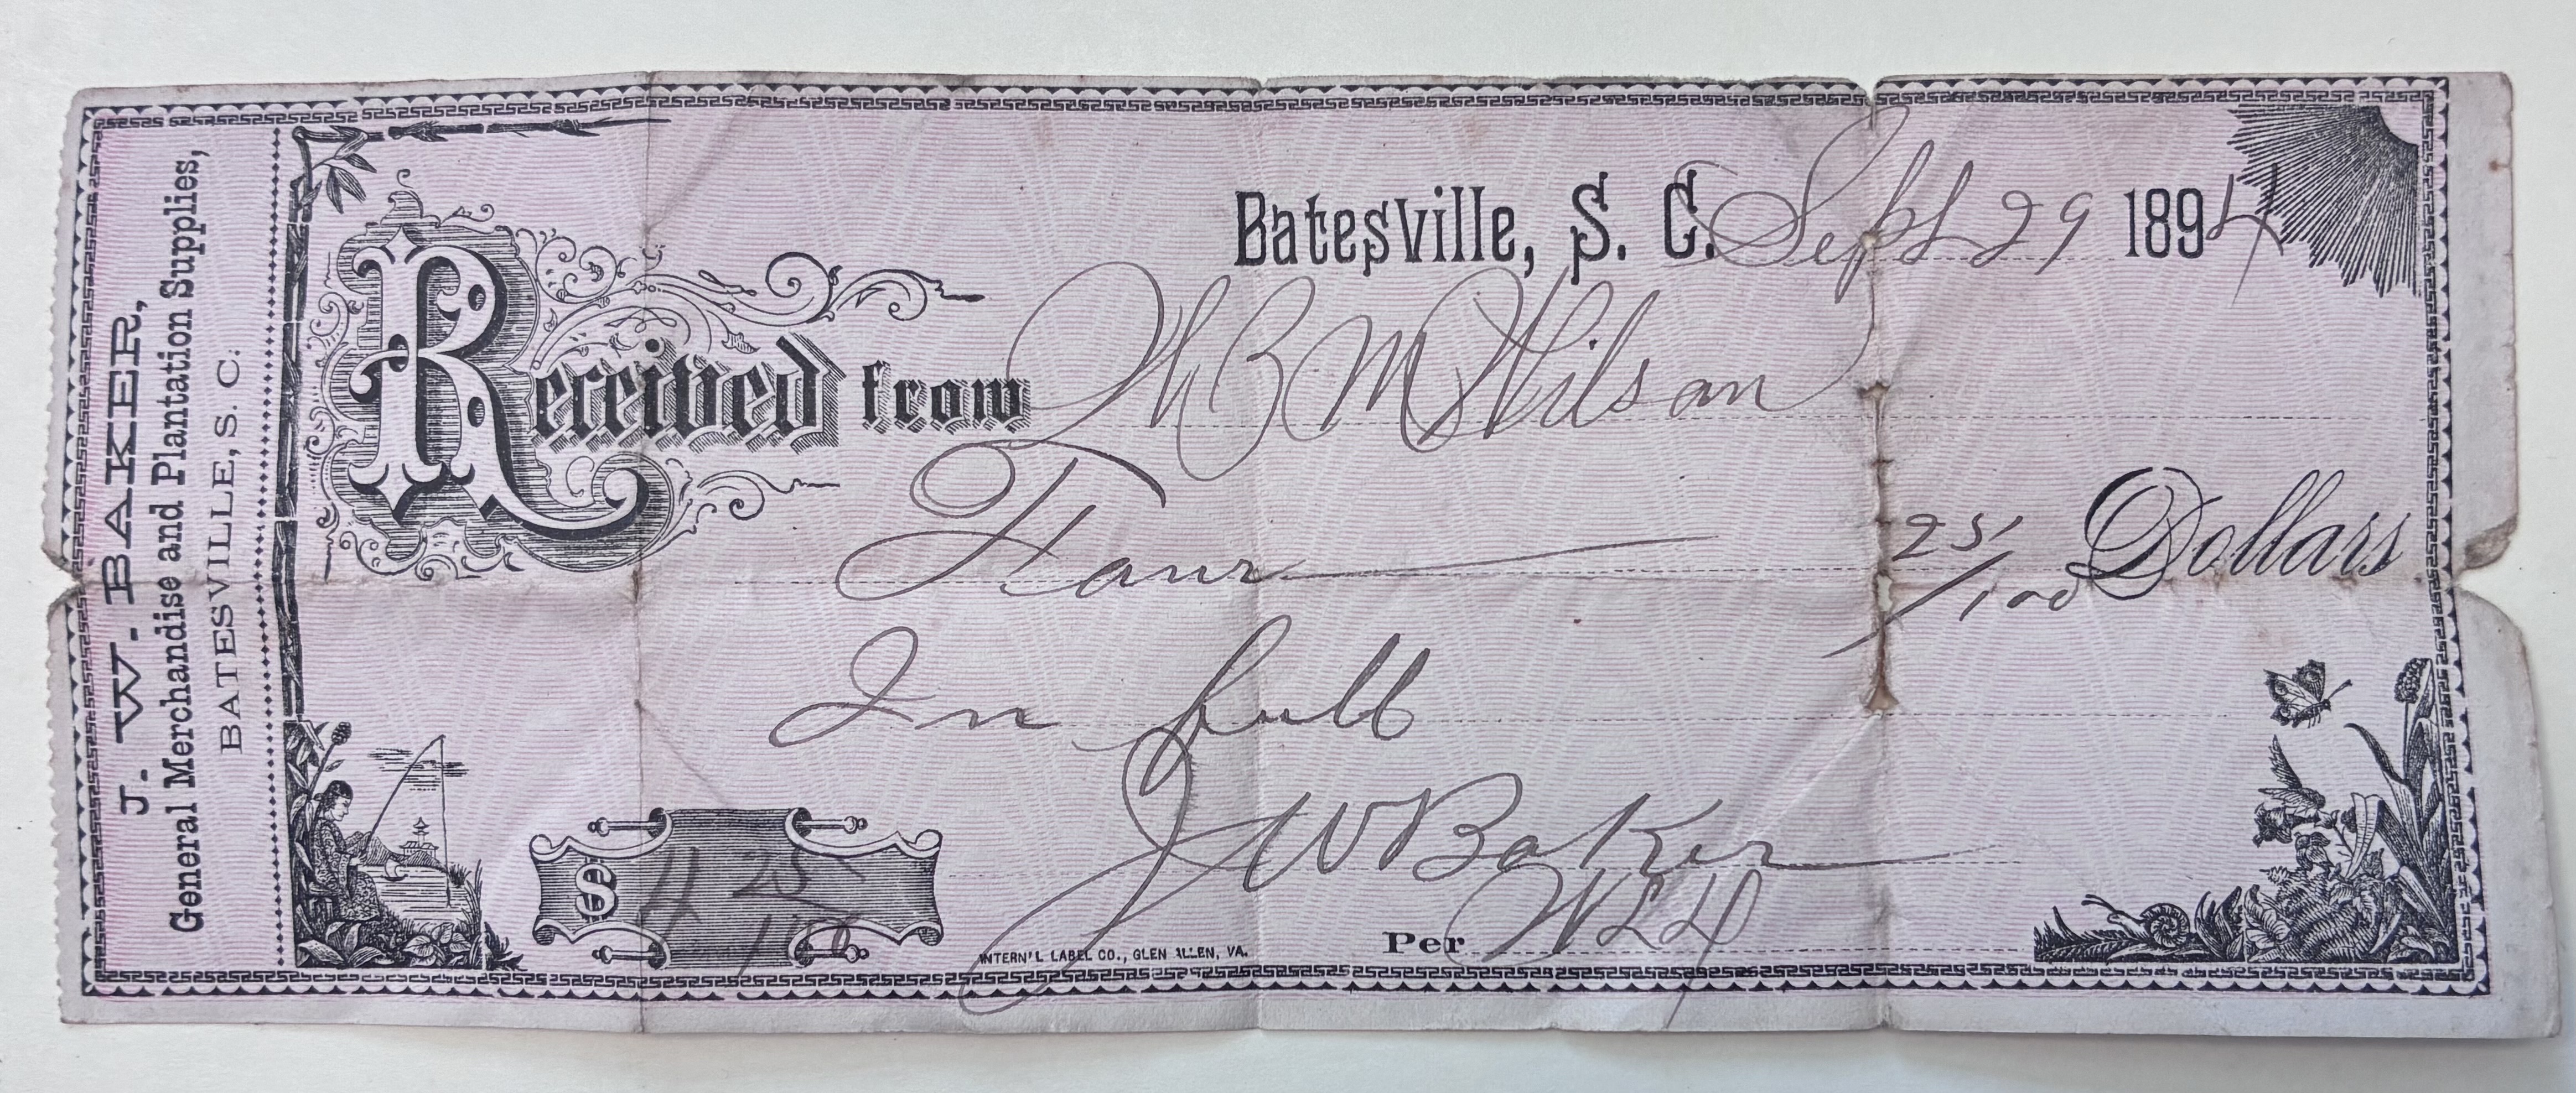 J. W. BAKER,
General Merchandise and Plantation Supplies,
BATESVILLE, S. C.
Batesville, S. C. Sept 29 1894
Received from W B M Wilson
Four 25/100 Dollars
In full
$ 4 25/100
J W Baker
INTERN'L LABEL CO., GLEN ALLEN, VA.
Per